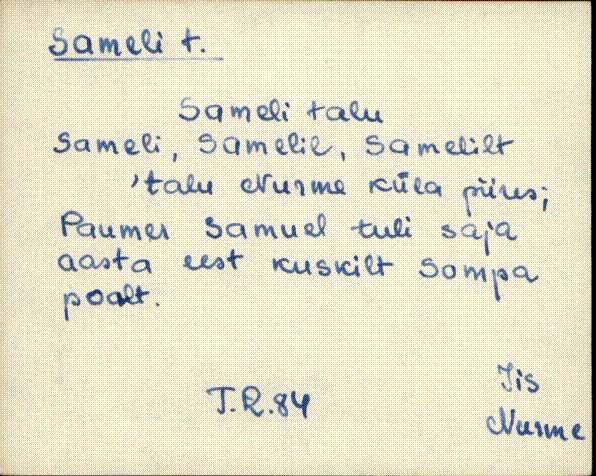 Sameli t.
Sameli talu
Sameli, Samelil, Samelilt
'talu Nurme küla piires;
Paumer Samuel tuli saja
aasta eest kuskilt Sompa
poalt.
T.R.84
Iis
Nurme